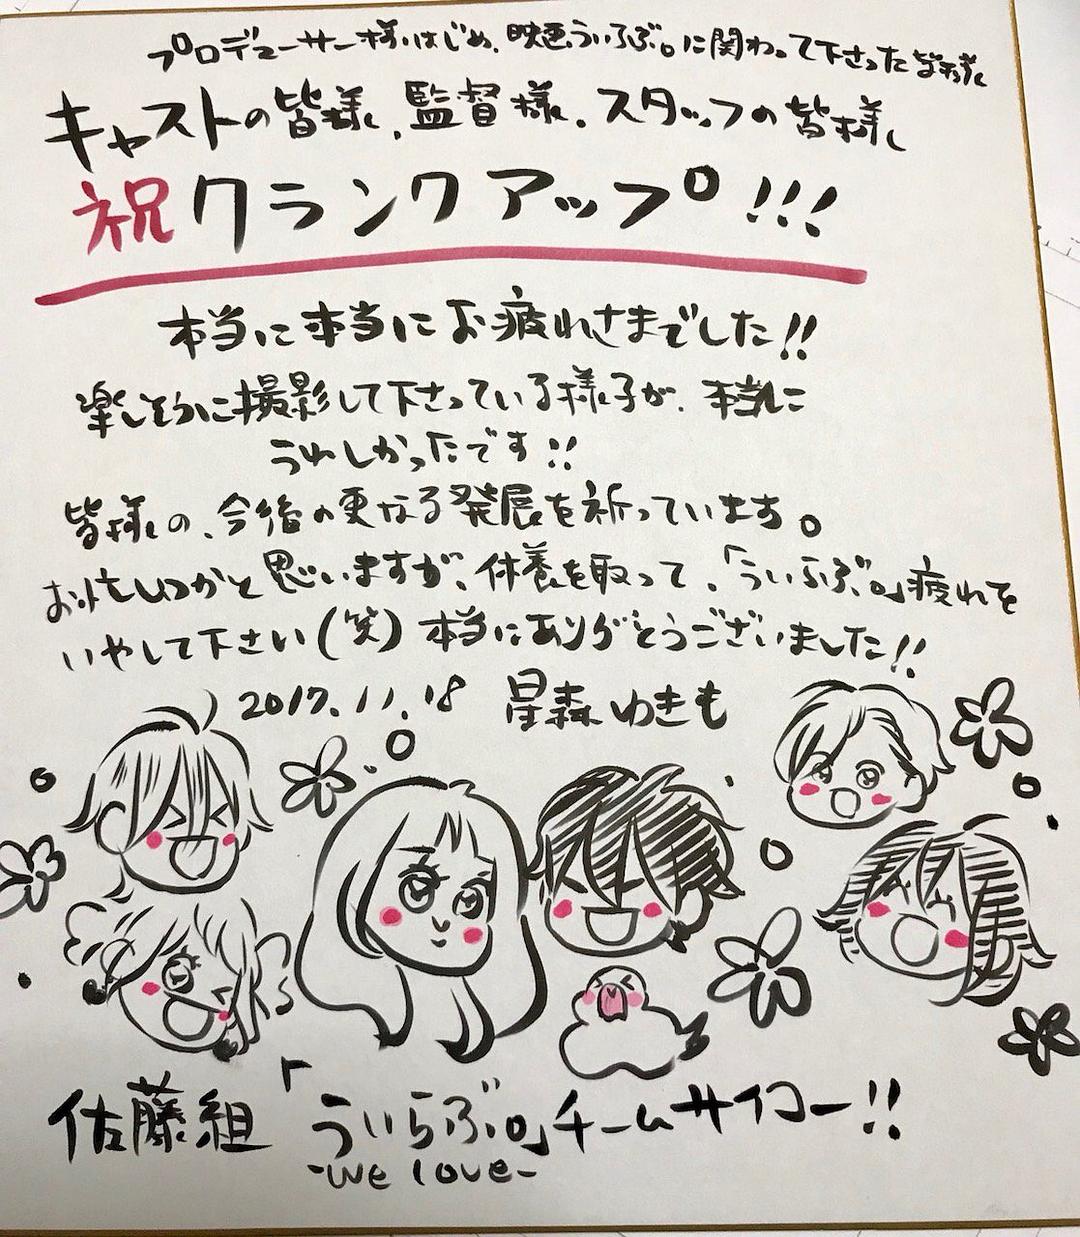 プロデューサー様はじめ、映画ういらぶ。に関わって下さった皆様
キャストの皆様、監督様、スタッフの皆様
祝クランクアップ!!!
本当に本当にお疲れさまでした!!
楽しそうに撮影して下さっている様子が、本当に
うれしかったです!!
皆様の、今後の更なる発展を祈っています。
お忙しいかと思いますが、休養を取って、「ういらぶ。」疲れを
いやして下さい(笑) 本当にありがとうございました!!
2017.11.18 星森ゆきも
佐藤組「ういらぶ。」チームサイコー!!
-We love-